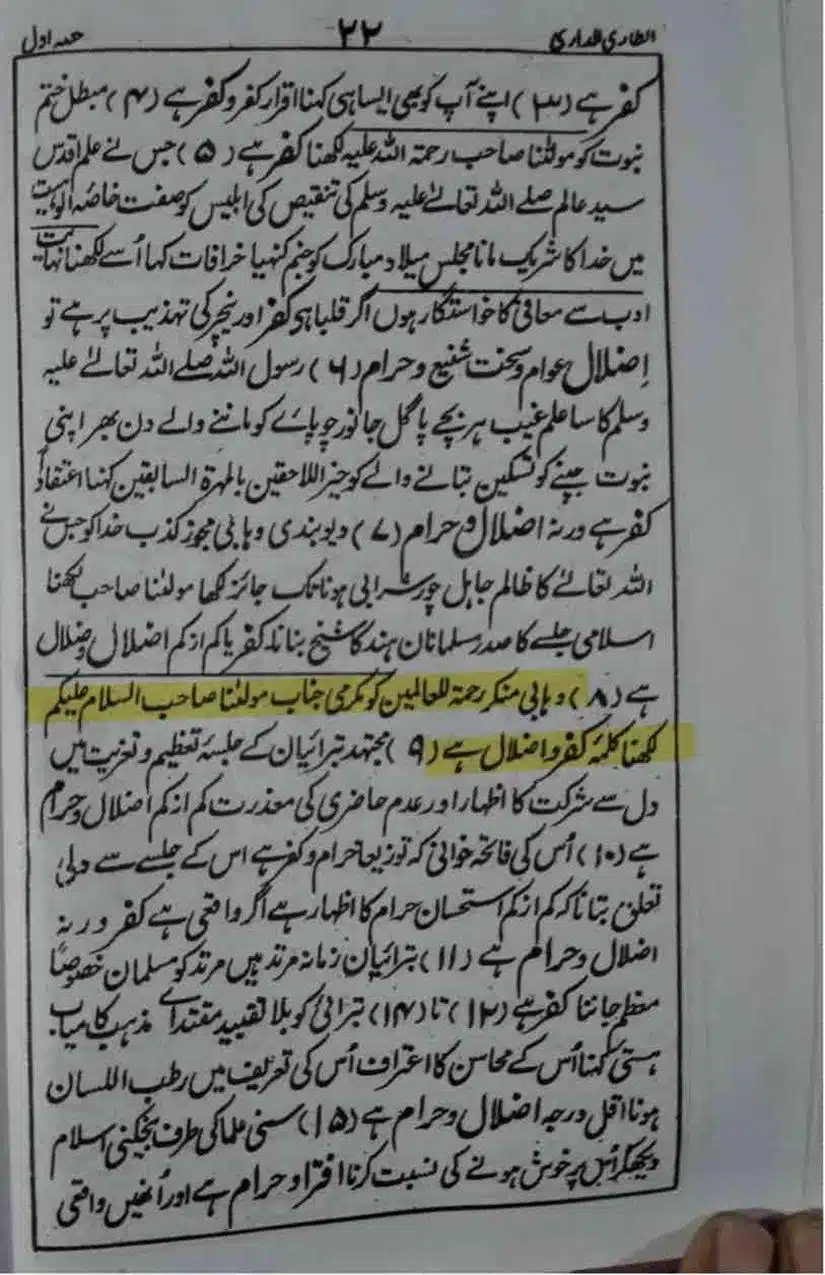 الطاری الداری ۲۲ حصہ اول
کفر ہے (۳) اپنے آپ کو بھی ایسا ہی کہنا اقرار کفر و کفر ہے (۴) مبطل ختم
نبوت کو مولٰنا صاحب رحمۃ اللہ علیہ لکھنا کفر ہے (۵) جس نے علم اقدس
سید عالم صلے اللہ تعالےٰ علیہ وسلم کی تنقیص کی ابلیس کو صفت خاصہ الوہیت
میں خدا کا شریک مانا مجلس میلاد مبارک کو جنم کنہیا خرافات کہا اُسے لکھنا نہایت
ادب سے معافی کا خواستگار ہوں اگر قلبا ہی کفر اور نیچر کی تہذیب پر ہے تو
اِضلال عوام و سخت شنیع و حرام (۶) رسول اللہ صلے اللہ تعالےٰ علیہ
وسلم کا سا علم غیب ہر بچے پاگل جانور چوپائے کو ماننے والے دن بھر اپنی
نبوت جپنے کو تسکین بتانے والے کو خیر اللاحقین بالمہرۃ السابقین کہنا اعتقاداً
کفر ہے ورنہ اضلال و حرام (۷) دیوبندی وہابی مجوز کذب خدا کو جس نے
اللہ تعالےٰ کا ظالم جاہل چور شرابی ہونا تک جائز لکھا مولٰنا صاحب لکھنا
اسلامی جلسے کا صدر مسلمانان ہند کا شیخ بنانا کفر یا کم از کم اضلال و ضلال
ہے (۸) وہابی منکر رحمۃ للعالمین کو مکرمی جناب مولٰنا صاحب السلام علیکم
لکھنا کلمۂ کفر و اضلال ہے (۹) مجتہد تبرائیان کے جلسۂ تعظیم و تعزیت میں
دل سے شرکت کا اظہار اور عدم حاضری کی معذرت کم از کم اضلال و حرام
ہے (۱۰) اُس کی فاتحہ خوانی کہ توزیعاً حرام و کفر ہے اس کے جلسے سے دلی
تعلق بتانا کہ کم از کم استحسان حرام کا اظہار ہے اگر واقعی ہے کفر ورنہ
اضلال و حرام ہے (۱۱) تبرائیان زمانہ مرتد ہیں مرتد کو مسلمان خصوصاً
معظم جاننا کفر ہے (۱۲) تا (۱۴) تبرائی کو بلا تقیید مقتداے مذہب کامیاب
ہستی کہنا اُس کے محاسن کا اعتراف اُس کی تعریف میں رطب اللسان
ہونا اقل درجہ اضلال و حرام ہے (۱۵) سنی علما کی طرف بیخکنی اسلام
دیکھکر اُس پر خوش ہونے کی نسبت کرنا افترا و حرام ہے اور اُنھیں واقعی